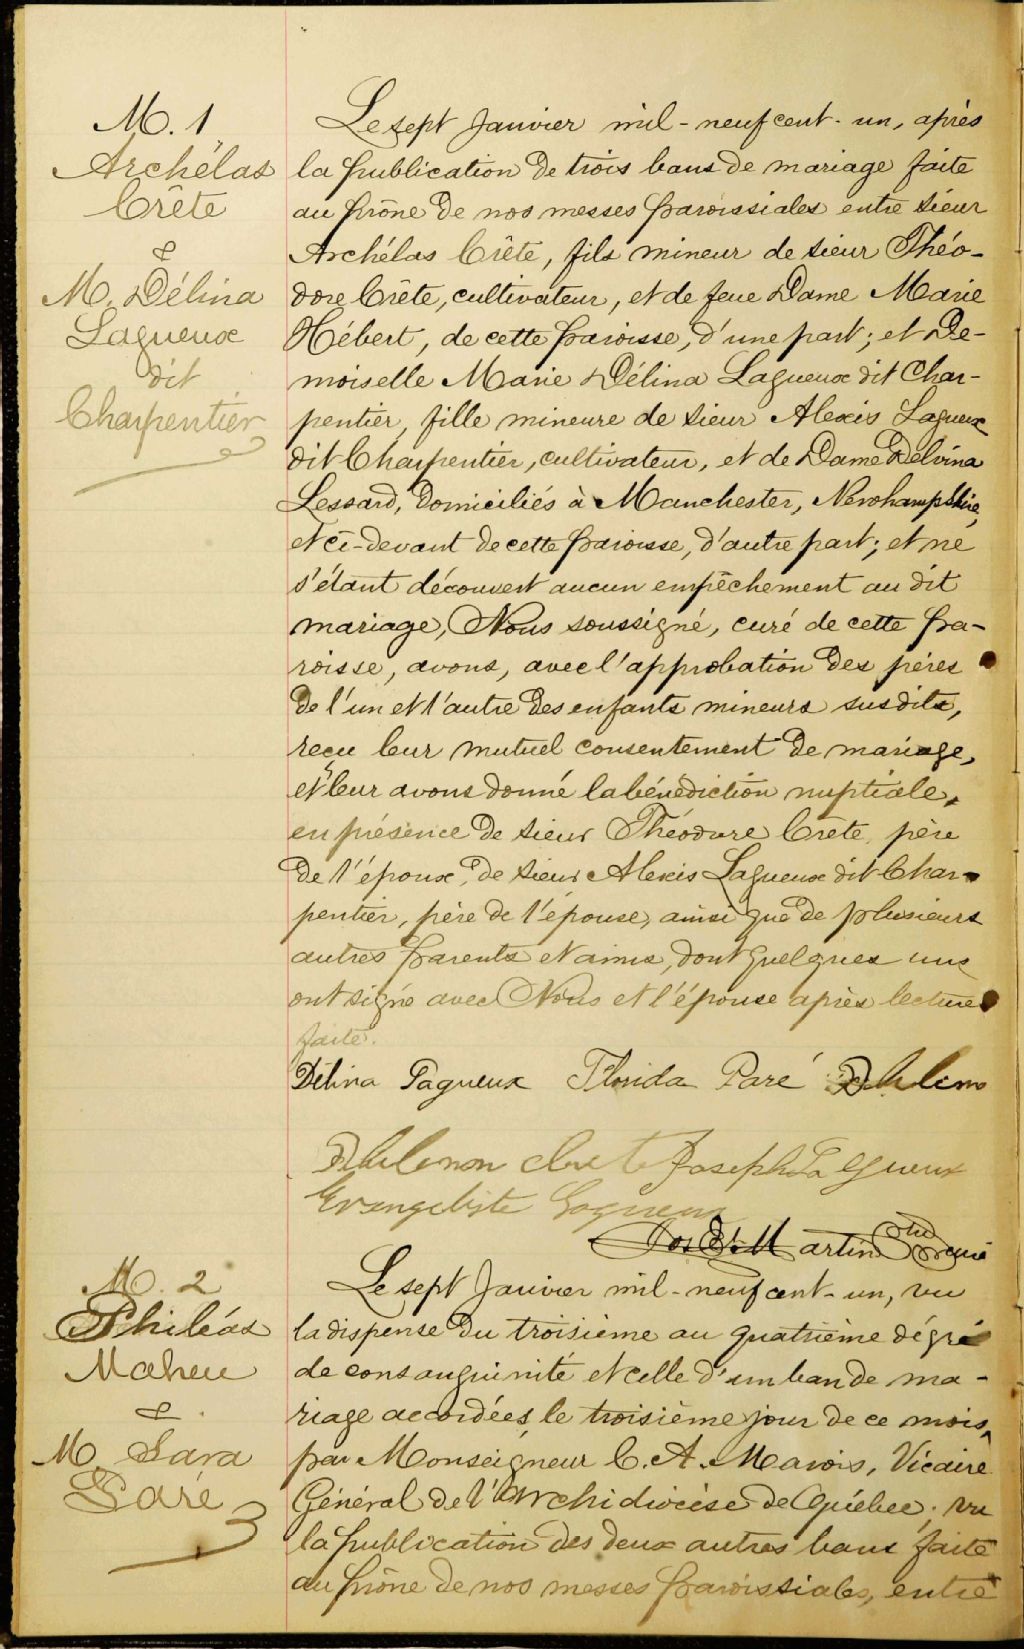 M. 1
Archélas
Crête
&
M. Délina
Lagueux
dit
Charpentier
Le sept Janvier mil-neuf cent-un, après
la publication de trois bans de mariage faite
au prône de nos messes paroissiales entre Sieur
Archélas Crête, fils mineur de Sieur Théo-
dore Crête, cultivateur, et de feue Dame Marie
Hébert, de cette paroisse, d'une part; et De-
moiselle Marie Délina Lagueux dit Char-
pentier, fille mineure de Sieur Alexis Lagueux
dit Charpentier, cultivateur, et de Dame Delvina
Lessard, domiciliés à Manchester, Newhampshire,
et ci-devant de cette paroisse, d'autre part; et ne
s'étant découvert aucun empêchement au dit
mariage, Nous soussigné, curé de cette pa-
roisse, avons, avec l'approbation des pères
de l'un et l'autre des enfants mineurs susdits,
reçu leur mutuel consentement de mariage,
et leur avons donné la bénédiction nuptiale,
en présence de Sieur Théodore Crête, père
de l'époux, de Sieur Alexis Lagueux dit Char-
pentier, père de l'épouse, ainsi que de plusieurs
autres parents et amis, dont quelques uns
ont signé avec Nous et l'épouse après lecture
faite.
Délina Lagueux Florida Paré
Joseph Lagueux
Evangeliste Lagueux
Martin Ptre curé
M. 2
Philéas
Maheu
&
M. Sara
Paré
Le sept Janvier mil-neuf cent-un, vu
la dispense du troisième au quatrième dégré
de consanguinité et celle d'un ban de ma-
riage accordées le troisième jour de ce mois,
par Monseigneur C. A. Marois, Vicaire
Général de l'Archidiocèse de Québec; vu
la publication des deux autres bans faite
au prône de nos messes paroissiales, entre